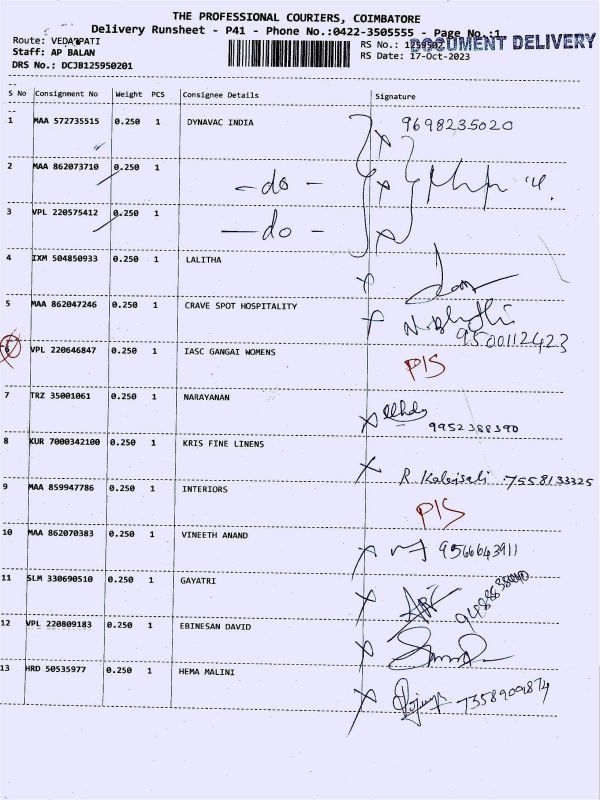 THE PROFESSIONAL COURIERS, COIMBATORE
Delivery Runsheet - P41 - Phone No.:0422-3505555 - Page No.:1
Route: VEDAPPATI
Staff: AP BALAN
DRS No.: DCJB125950201
RS No.: 1259502
DOCUMENT DELIVERY
RS Date: 17-Oct-2023
S No Consignment No Weight PCS Consignee Details Signature
1 MAA 572735515 0.250 1 DYNAVAC INDIA 9698235020
2 MAA 862073710 0.250 1 - do -
3 VPL 220575412 0.250 1 - do -
4 IXM 504850933 0.250 1 LALITHA
5 MAA 862047246 0.250 1 CRAVE SPOT HOSPITALITY 9500112423
6 VPL 220646847 0.250 1 IASC GANGAI WOMENS P/S
7 TRZ 35001061 0.250 1 NARAYANAN 9952388390
8 KUR 7000342100 0.250 1 KRIS FINE LINENS 7558133325
9 MAA 859947786 0.250 1 INTERIORS P/S
10 MAA 862070383 0.250 1 VINEETH ANAND 9566643911
11 SLM 330690510 0.250 1 GAYATRI
12 VPL 220809183 0.250 1 EBINESAN DAVID
13 HRD 50535977 0.250 1 HEMA MALINI 7358909874